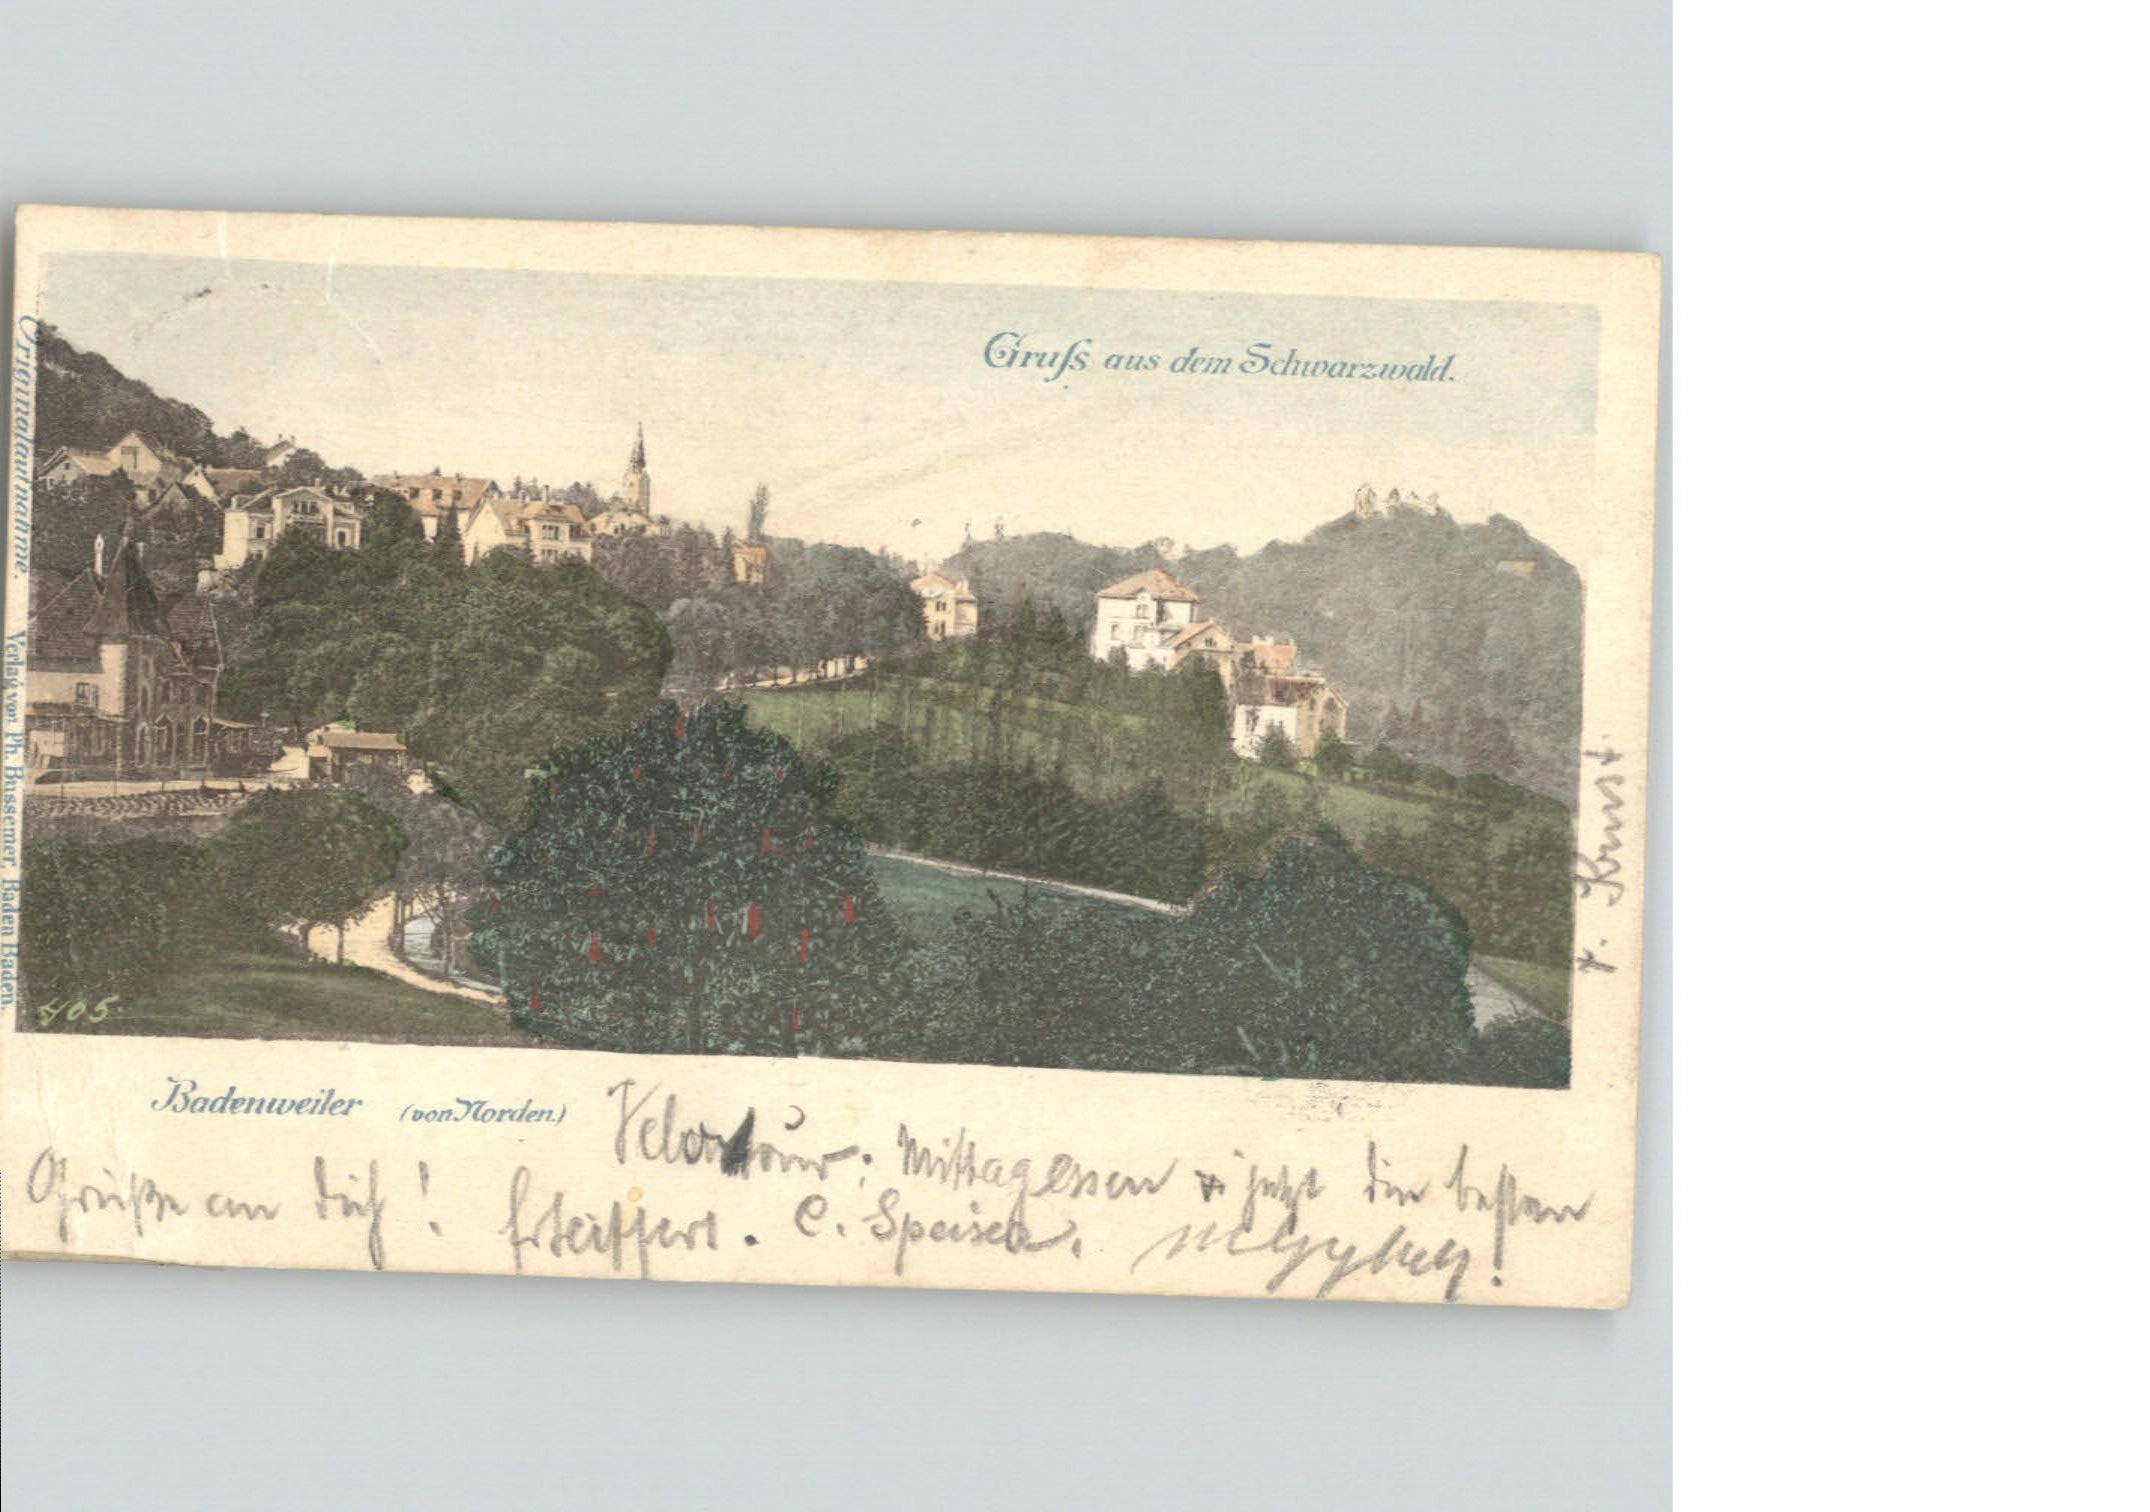 Gruſs aus dem Schwarzwald.
Originalaufnahme.
Verlag von Ph. Bussemer, Baden Baden.
405.
Badenweiler (von Norden.)
Velotour: Mittagessen & jetzt die besten
Grüße an Dich!
C. Speiser.
v. Kunst.